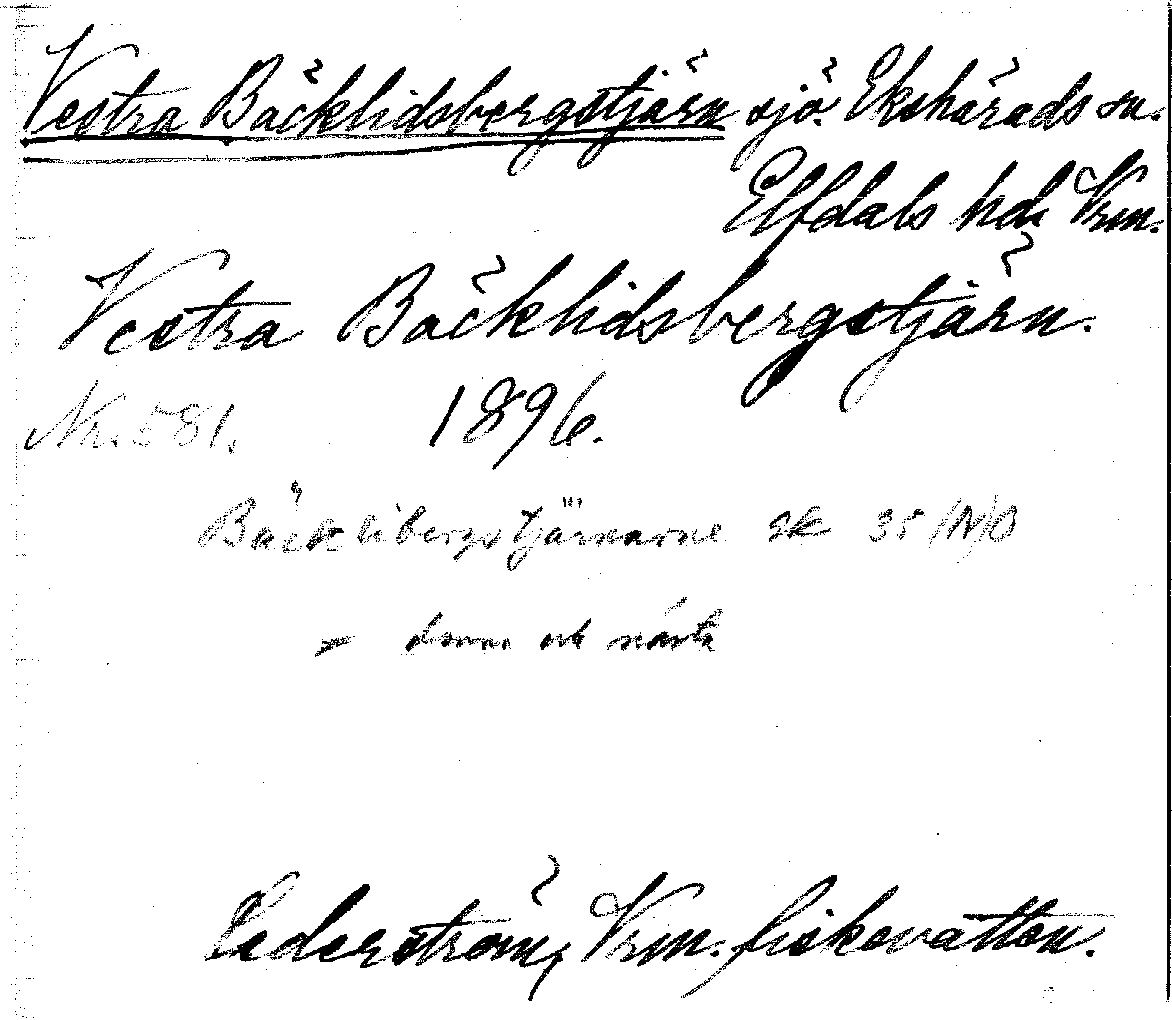 Vestra Bäcklidsbergstjärn sjö. Ekshärads sn.
Elfdals hd. Vrm.
Vestra Bäcklidsbergstjärn.
Nr. 581. 1896.
Bäcklibergstjärnarne sk 35
denna och nästa
Cederström, Vrm. fiskevatten.